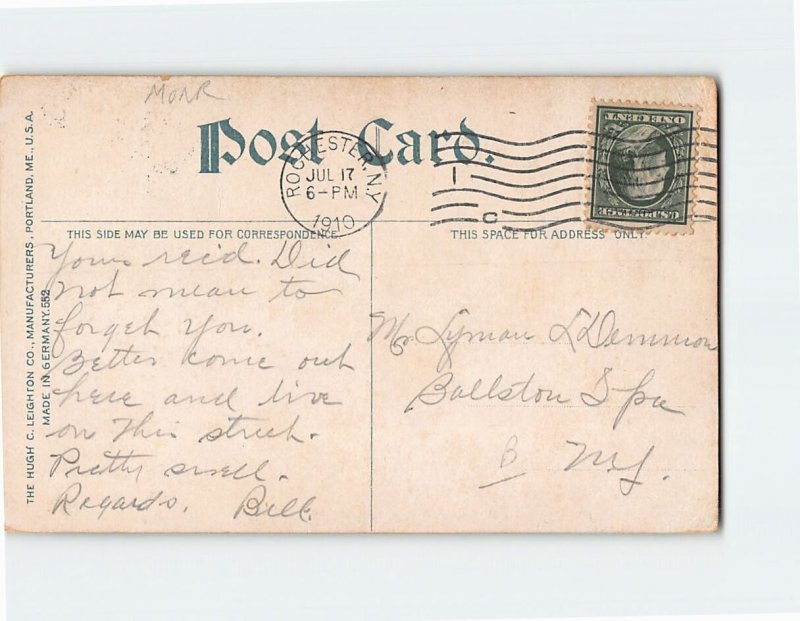 MONR
Post Card.
ROCHESTER, N.Y.
JUL 17
6-PM
1910
ONE CENT
U.S. POSTAGE
THIS SIDE MAY BE USED FOR CORRESPONDENCE
THIS SPACE FOR ADDRESS ONLY.
THE HUGH C. LEIGHTON CO., MANUFACTURERS, PORTLAND, ME., U.S.A.
MADE IN GERMANY. 552
Yours rec'd. Did
not mean to
forget you.
Better come out
here and live
on this street.
Pretty swell.
Regards. Bill.
Mr Lyman L Demmon
Ballston Spa
B N.Y.